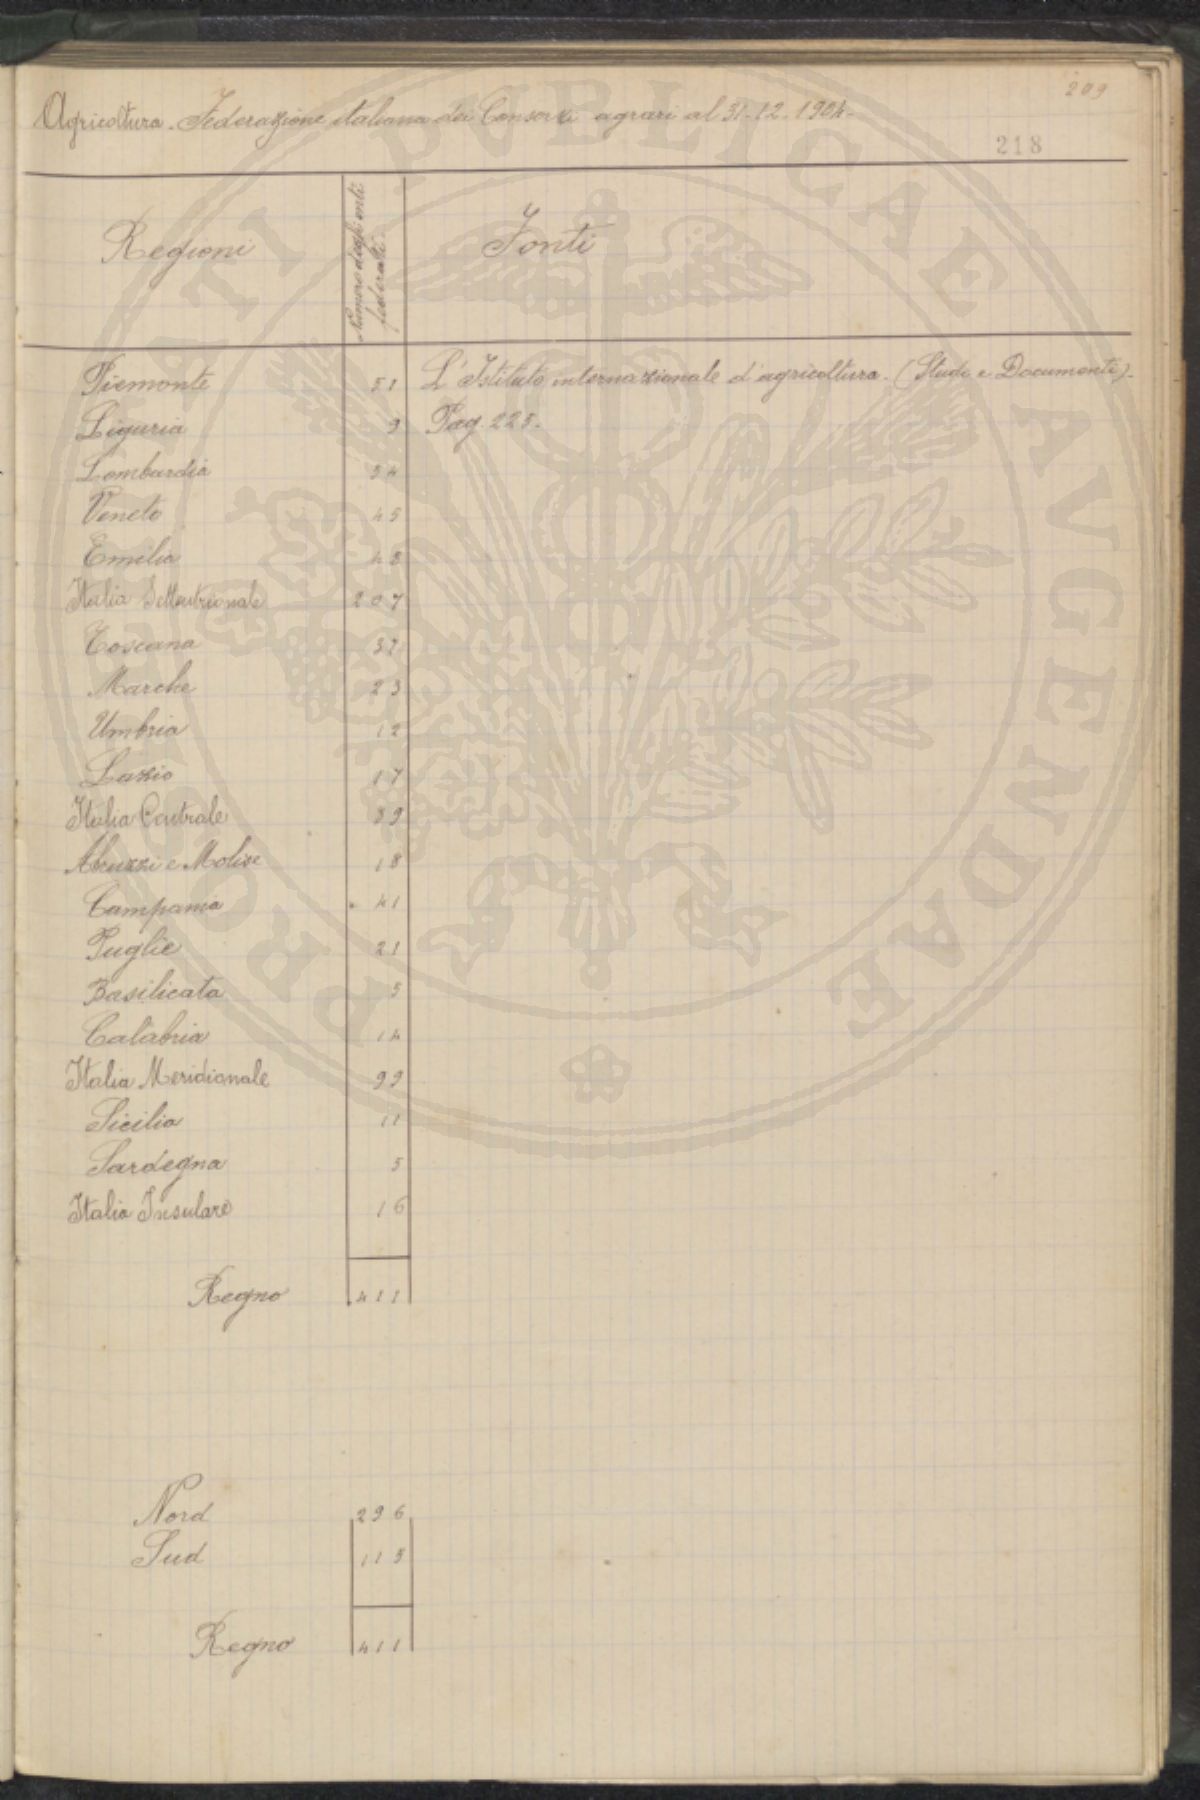 209
Agricoltura. Federazione italiana dei Consorzi agrari al 31.12.1904.
218
Regioni Numero degli enti federati Fonti
Piemonte 51 L'Istituto internazionale d'agricoltura. (Studi e Documenti).
Liguria 9 Pag. 225.
Lombardia 54
Veneto 45
Emilia 48
Italia Settentrionale 207
Toscana 37
Marche 23
Umbria 12
Lazio 17
Italia Centrale 89
Abruzzi e Molise 18
Campania 41
Puglie 21
Basilicata 5
Calabria 14
Italia Meridionale 99
Sicilia 11
Sardegna 5
Italia Insulare 16
Regno 411
Nord 296
Sud 115
Regno 411
PROSPERITATI PVBLICAE AVGENDAE